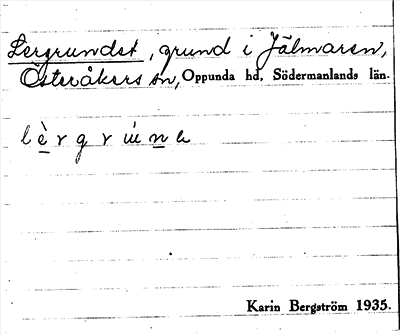 Lergrundet, grund i Jälmaren,
Österåkers sn, Oppunda hd, Södermanlands län.
Karin Bergström 1935.